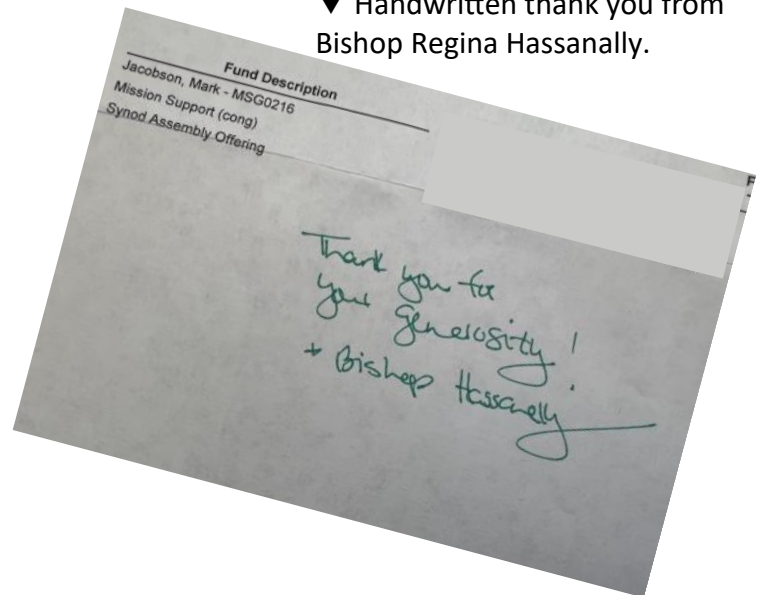 ▼ Handwritten thank you from
Bishop Regina Hassanally.
Fund Description
Jacobson, Mark - MSG0216
Mission Support (cong)
Synod Assembly Offering
Thank you for
your generosity!
+ Bishop Hassanally